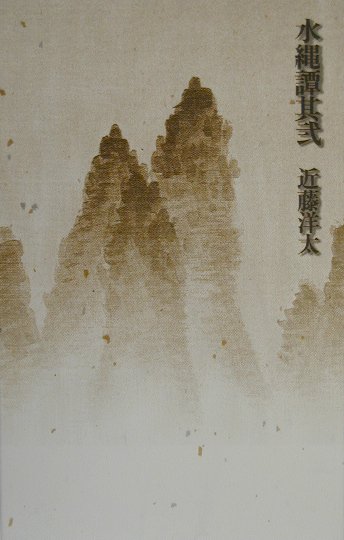 水縄譚其弐
近藤洋太